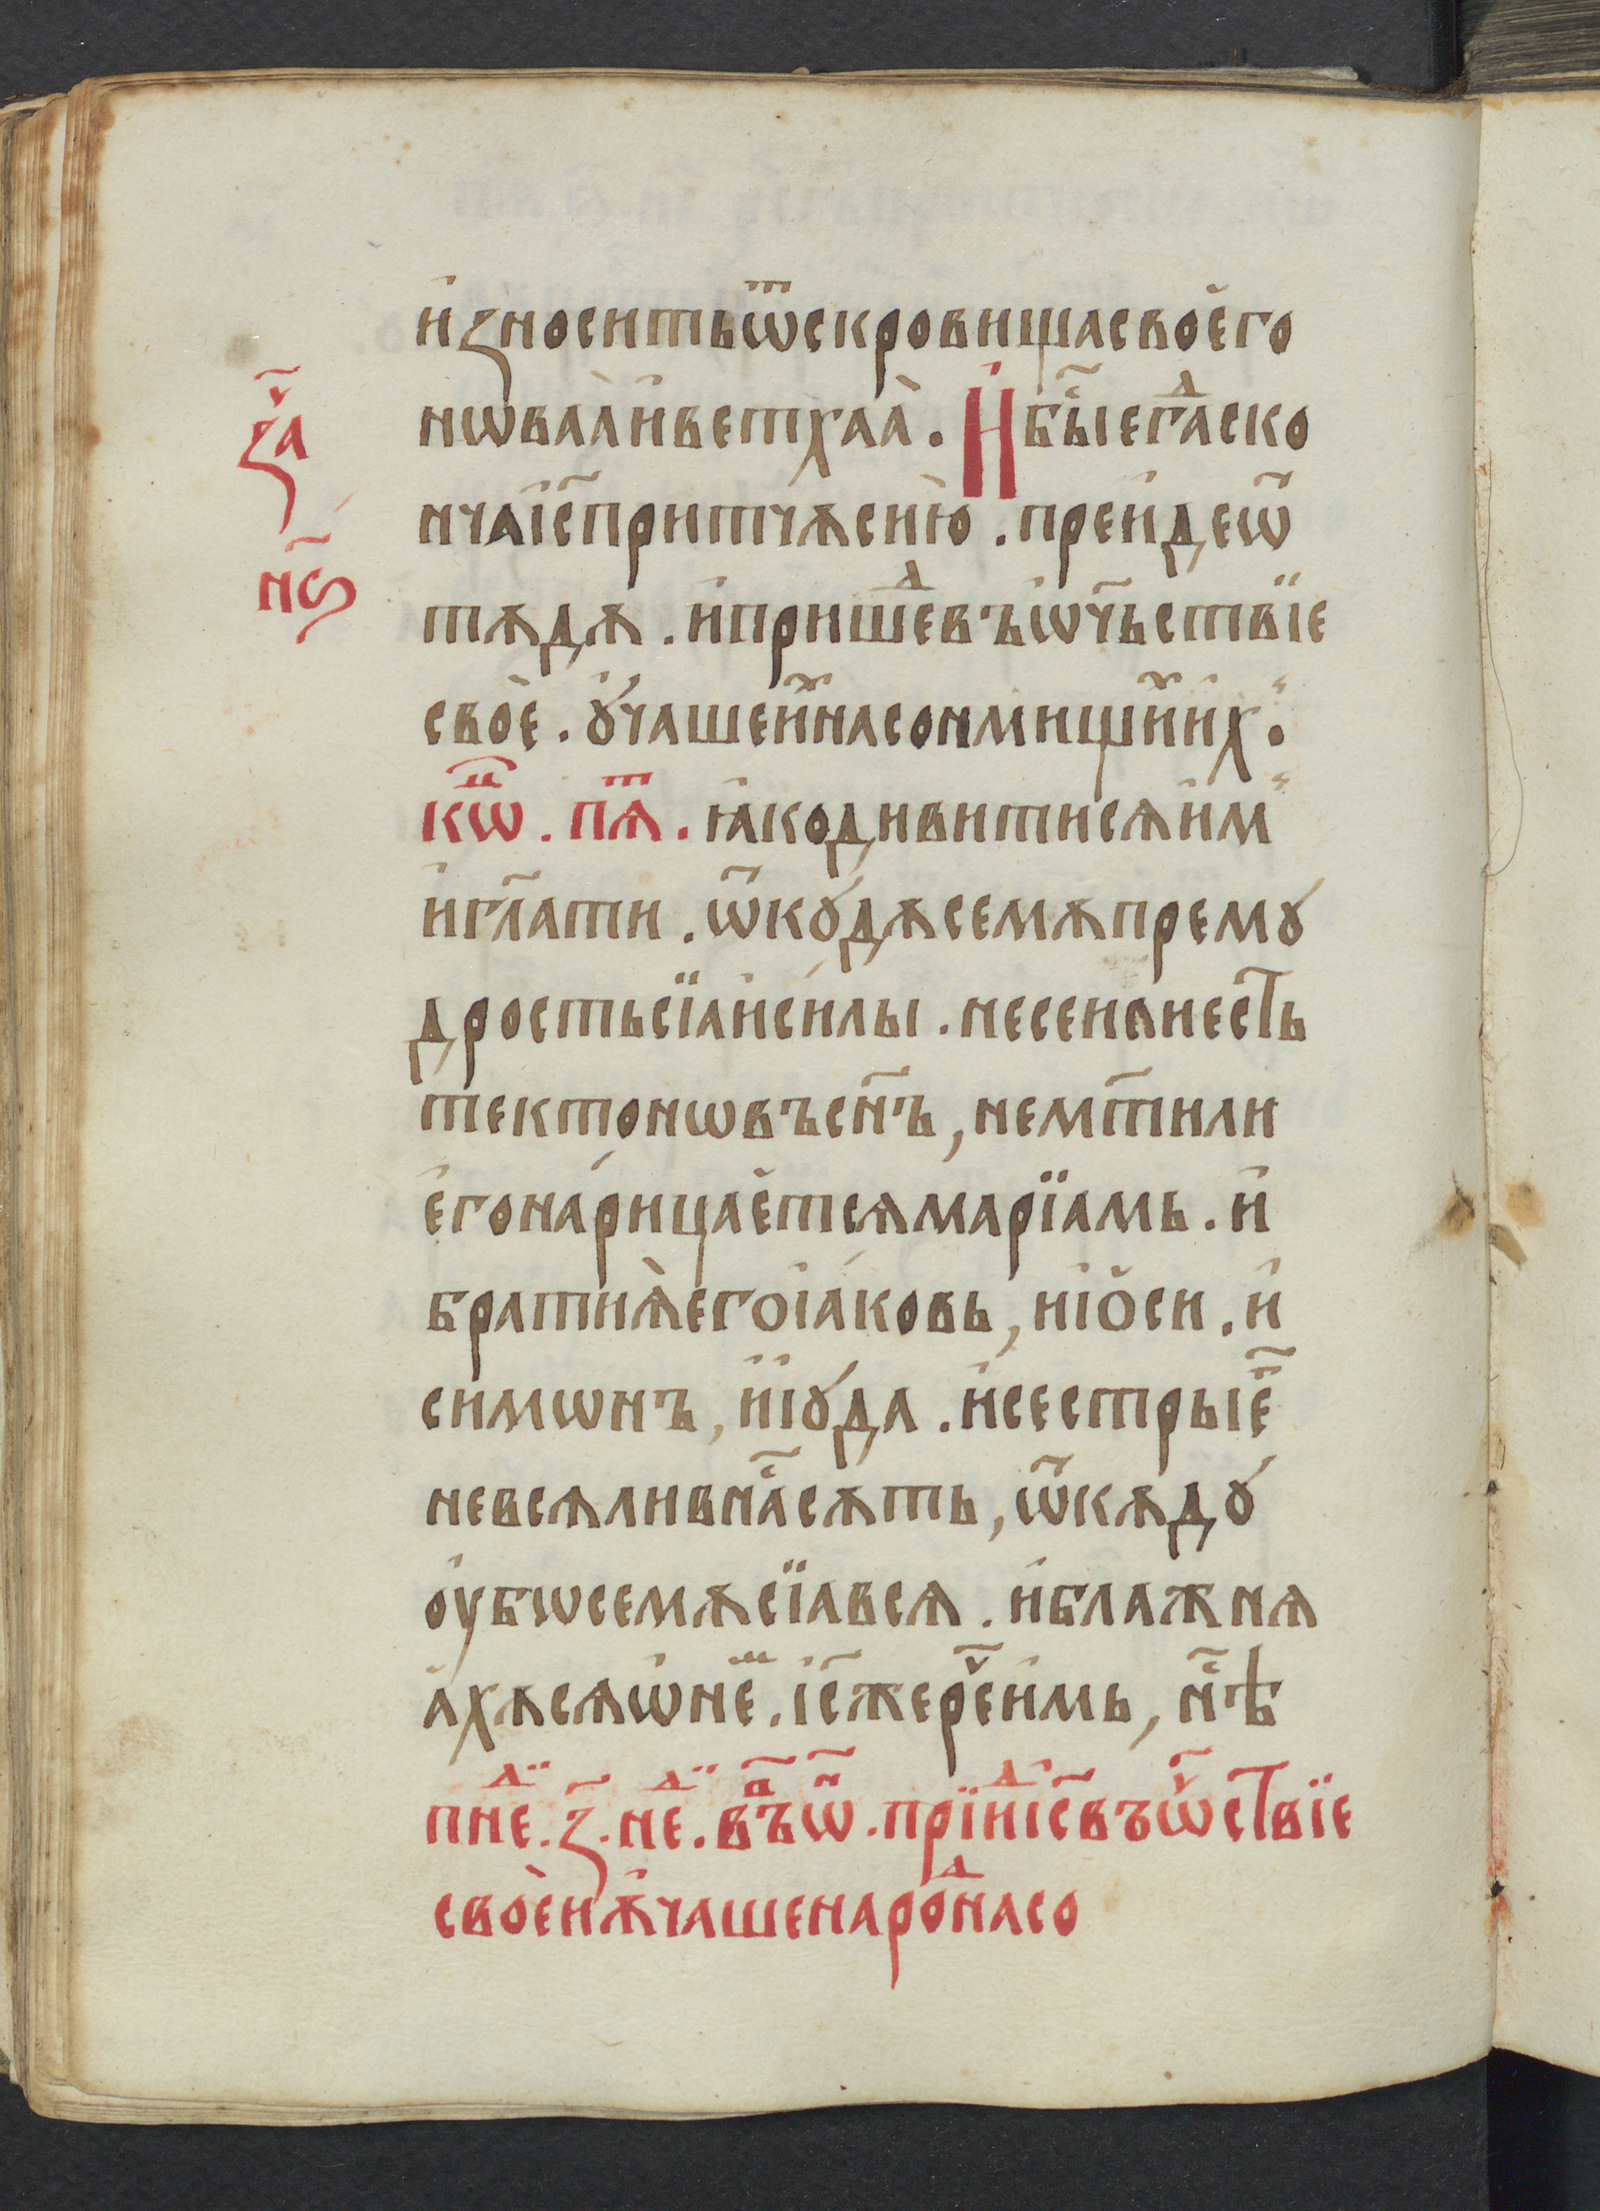 и҆ꙁноситьѿскровищасвоѐго
нѡваа̀и҆ветхаа̀. И҆бы́сⷭ҇егⷣаско
зач҃а
нчаі҆с҃притчѫсию̀. преи҆деѿ
н҃ѕ
тѫдѫ. и҆пришеⷣвъѡ҆ч҃ьствїе
своѐ. ꙋ҆чашеи҆х̾насонмищи҆и҆х.
кѡⷩ҇ц. пѧⷮ. ꙗ҆кодивитисѧи҆м
и҆гл҃ати. ѿкꙋ́дѫсемѫпремꙋ
дростьсїаи҆си́лы. несеилиесть
тектоновъсн҃ъ, нем҃тили
е҆гона́рицае҆тсѧмарїамь. и҆
братиѧ̀егоіа́ковь, иі҆о҆си. и҆
симѡнъ, и҆і҆ꙋда. и҆сестрые҆г҃
невсѧливна́сⷭ҇сѫть, ѿкѫдꙋ́
ѹ҆бѡсемѫсїавсѧ. и҆блажнѧ
а҆хѫсѧѡ҆неⷨ. і҆с҃жереч҃еи҆мь, нⷭ҇ѣ
пнеⷣ. з҃. неⷣ. въⷫ҇ѿ. прїиⷣі҆с҃въѿч҃ствїе
своѐиѫ҆чашенароⷣнасо